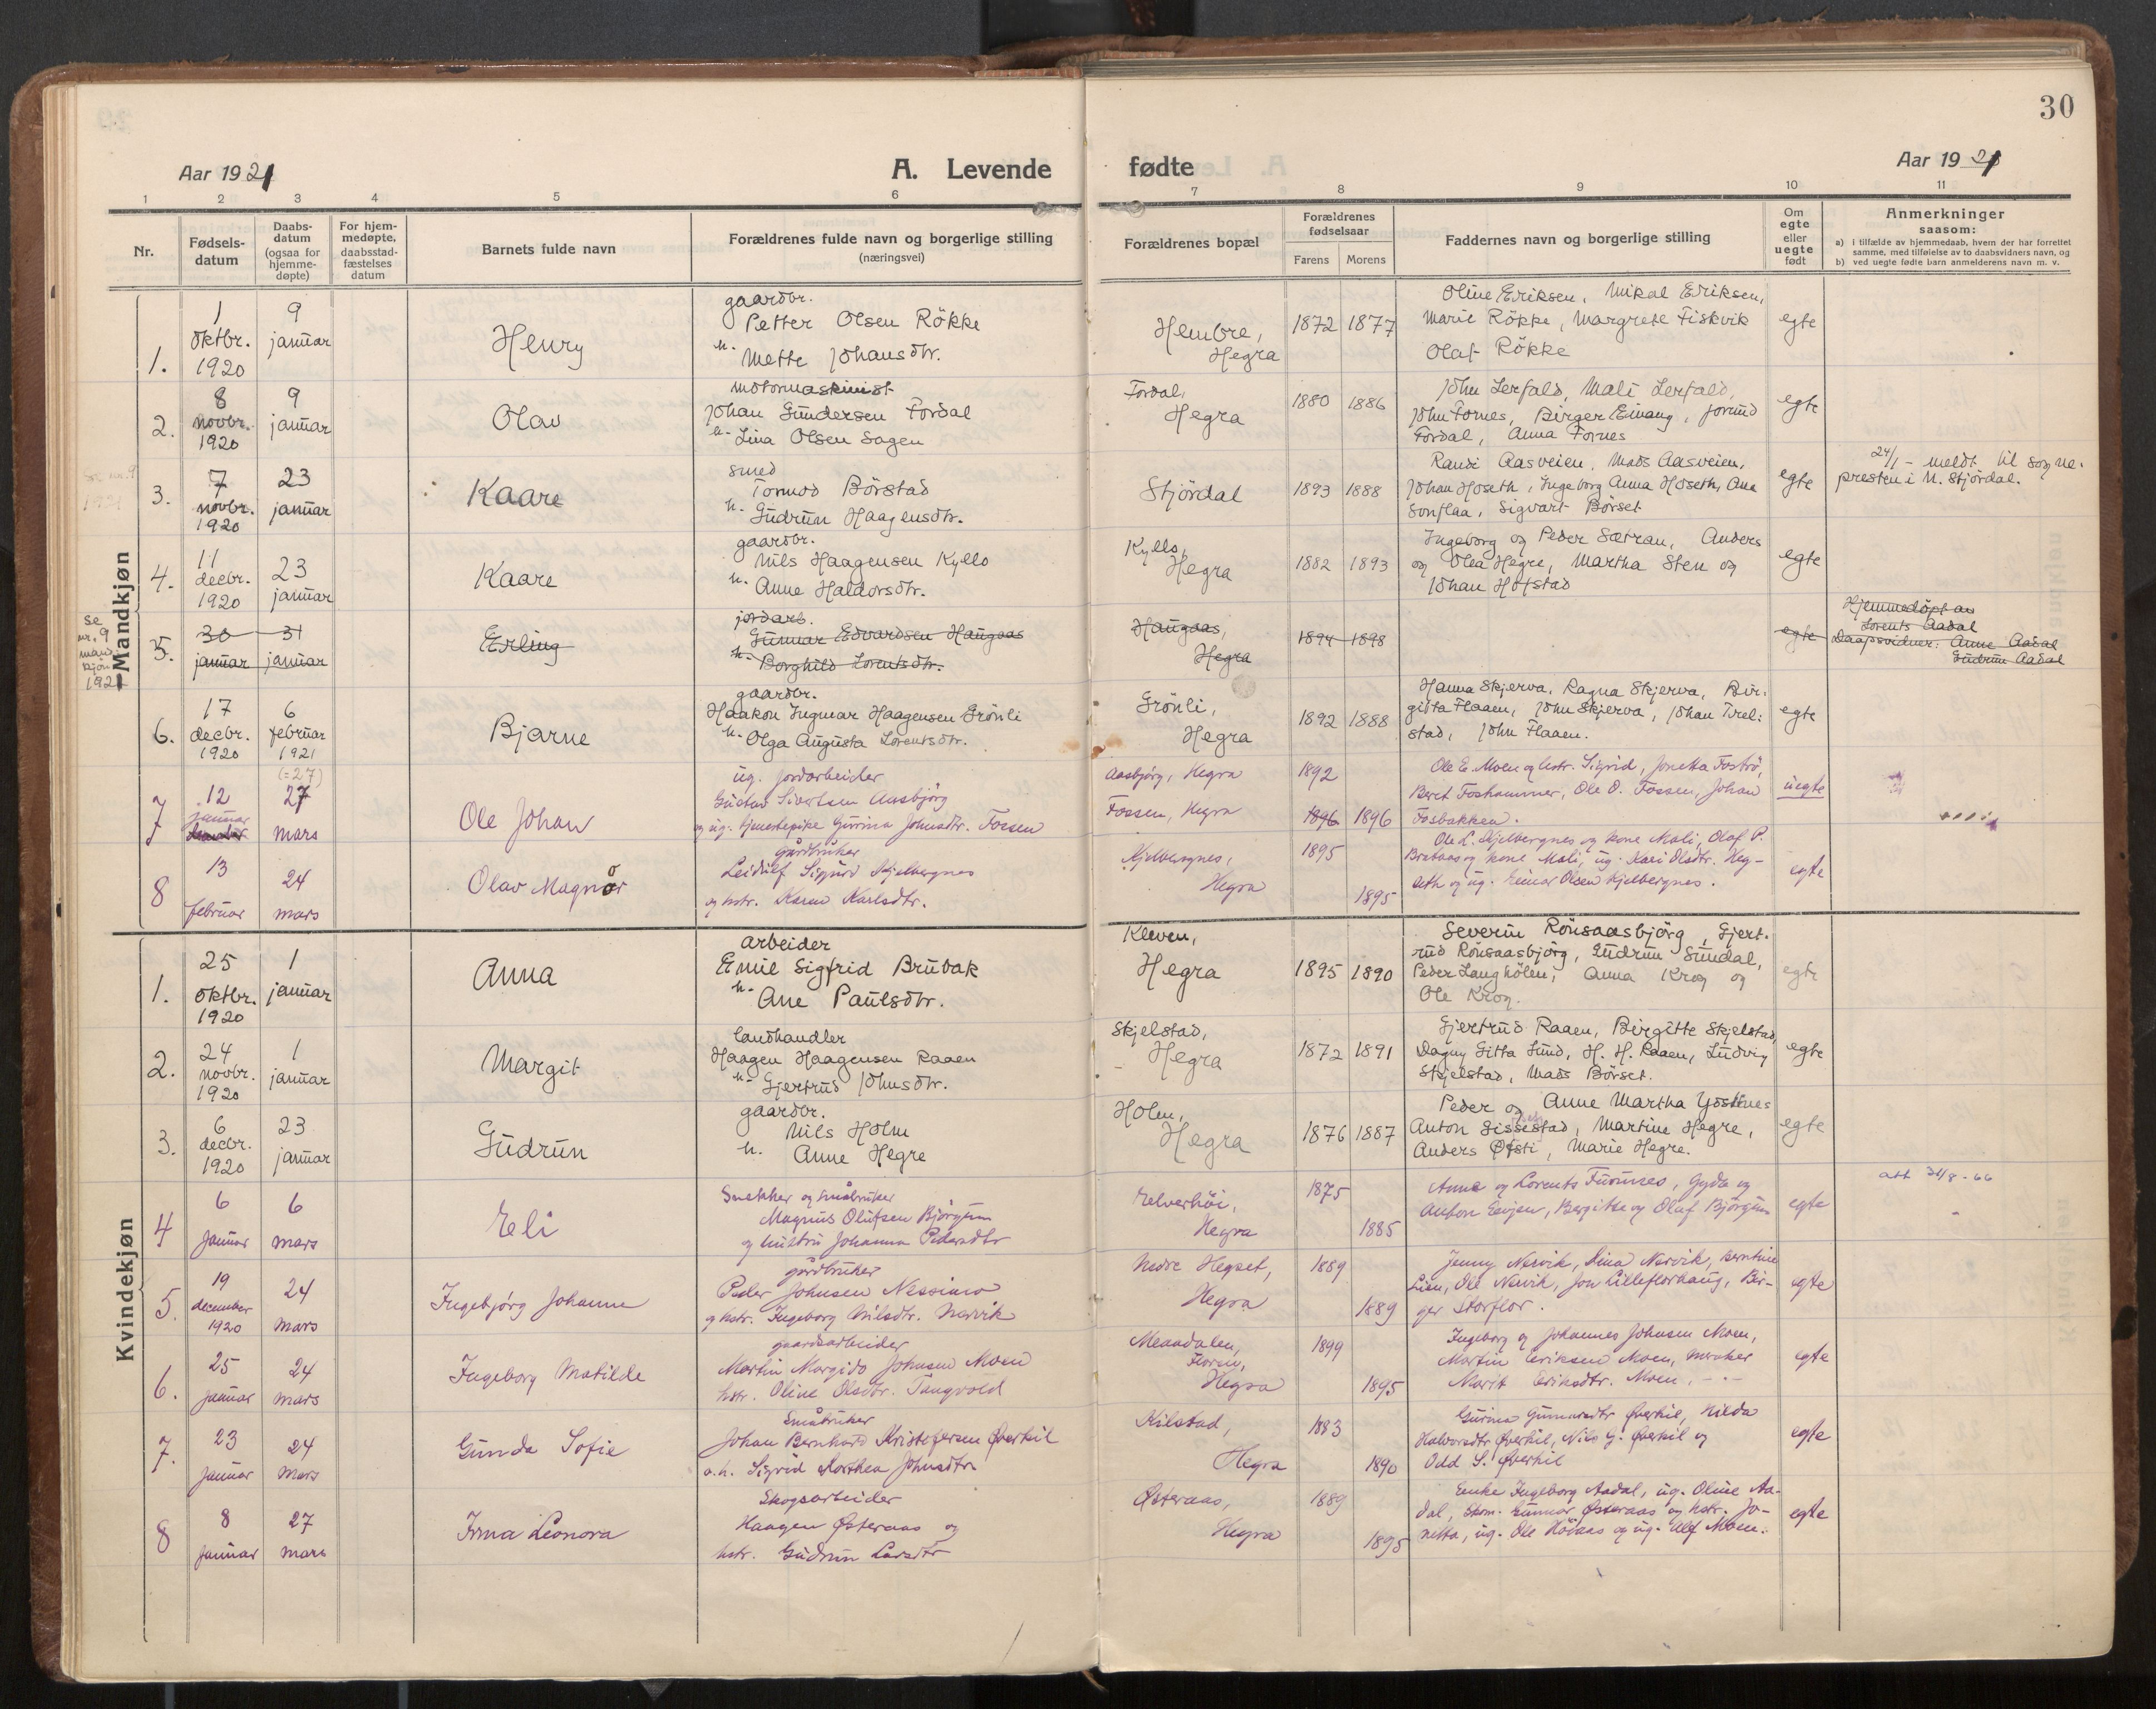 30
Aar 1921
A. Levende
fødte
Aar 1921
1 2 3 4 5 6 7 8 9 10 11
Nr.
Fødsels-
datum
Daabs-
datum
(ogsaa for
hjemme-
døpte)
For hjem-
medøpte,
daabsstad-
fæstelses
datum
Barnets fulde navn
Forældrenes fulde navn og borgerlige stilling
(næringsvei)
Forældrenes bopæl
Forældrenes
fødselsaar
Farens Morens
Faddernes navn og borgerlige stilling
Om
egte
eller
uegte
født
Anmerkninger
saasom:
a) i tilfælde av hjemmedaab, hvem der har forrettet
samme, med tilføielse av to daabsvidners navn, og
b) ved uegte fødte barn anmelderens navn m. v.
Mandkjøn
1.
1
oktbr.
1920
9
januar
Henry
gaardbr.
Petter Olsen Rökke
h. Mette Johansdtr.
Hembre,
Hegra
1872 1877
Oline Eriksen, Mikal Eriksen,
Marie Rökke, Margrete Fiskvik
Olaf Rökke
egte
2.
8
novbr.
1920
9
januar
Olav
motormaskinist
Johan Gundersen Fordal
h. Lina Olsen Sagen
Fordal,
Hegra
1880 1886
John Lerfald, Mali Lerfald,
John Fornes, Birger Einang, Jorund
Fordal, Anna Fornes
egte
3.
7
novbr.
1920
23
januar
Kaare
smed
Tormod Börstad
h. Gudrun Haagensdtr.
Stjördal
1893 1888
Randi Aasveien, Mads Aasveien,
Johan Hoseth, Ingeborg Anna Hoseth, Ane
Sonflaa, Sigvart Börset
egte
24/1 - meldt til sogne-
presten i N. Stjördal.
4.
11
decbr.
1920
23
januar
Kaare
gaardbr.
Nils Haagensen Kyllo
h. Anne Haldorsdtr.
Kyllo,
Hegra
1882 1893
Ingeborg og Peder Sætran, Anders
og Olea Hegre, Martha Sten og
Johan Hofstad
egte
se
nr. 9
mand-
kjön
1921
5.
30
januar
31
januar
Erling
jordarb.
Gunnar Edvardsen Haugaas
h. Borghild Lorentsdtr.
Haugaas,
Hegra
1894 1898
egte
Hjemmedöpt av
Lorents Aadal
Daapsvidner: Anne Aadal
Gudrun Aadal
6.
17
decbr.
1920
6
februar
1921
Bjarne
gaardbr.
Haakon Ingmar Haagensen Grönli
h. Olga Augusta Lorentsdtr.
Grönli,
Hegra
1892 1888
Hanna Skjerva, Ragna Skjerva, Bir-
gitta Flaaen, John Skjerva, Johan Trel-
stad, John Flaaen.
egte
7
12
januar
(=27)
27
mars
Ole Johan
ug. jordarbeider
Gustav Sivertsen Aasbjörg
og ug. tjenestepike Gurina Johnsdtr. Fossen
Aasbjörg, Hegra
Fossen, Hegra
1892
1896 1896
Ole E. Moen og hstr. Sigrid, Jonetta Foströ,
Beret Foshammer, Ole O. Fossen, Johan
Fosbakken.
uegte
8
13
februar
24
mars
Olav Magnor
o
gårdbruker
Leidulf Sigurd Kjelbergnes
og hstr. Karen Karlsdtr.
Kjelbergnes,
Hegra
1895
1895
Ole L. Kjelbergnes og kone Mali, Olaf P.
Brataas og kone Mali, ug. Kari Olsdtr. Heg-
seth og ug. Einar Olsen Kjelbergnes.
egte
Kvindekjøn
1.
25
oktbr.
1920
1
januar
Anna
arbeider
Emil Sigfrid Brubak
h. Ane Paulsdtr.
Kleven,
Hegra
1895 1890
Severin Rönsaasbjörg, Gjert-
rud Rönsaasbjörg, Gudrun Sundal,
Peder Langhölen, Anna Krog og
Ole Krog.
egte
2.
24
novbr.
1920
1
januar
Margit
landhandler
Haagen Haagensen Raaen
h. Gjertrud Johnsdtr.
Skjelstad,
Hegra
1872 1891
Gjertrud Raaen, Birgitte Skjelstad,
Dagny Gitta Lund, H. H. Raaen, Ludvig
Skjelstad, Mads Börset.
egte
3.
6
decbr.
1920
23
januar
Gudrun
gaardbr.
Nils Holm
h. Anne Hegre
Holen,
Hegra
1876 1887
Peder og Anne Martha
Anton Martine Hegre,
Anders Øfsti, Marie Hegre.
egte
4
6
januar
6
mars
Eli
Snekker og småbruker
Magnus Olufsen Björgum
og hustru Johanna Pedersdtr
Elverhöi,
Hegra
1875
1885
Anna og Lorents Fuornes, Gyda og
Anton Evjen, Bergitte og Olaf Björgum
egte
att 31/8-66
5.
19
december
1920
24
mars
Ingebjörg Johanne
gårdbruker
Peder Johnsen
og hstr. Ingeborg Nilsdtr. Nervik
Nedre Hegset,
Hegra
1889
1889
Jenny Nervik, Nina Nervik, Berntine
Lien, Ole Nervik, Jon Lilleflorhaug, Bir-
ger Storflor.
egte
6.
25
januar
24
mars
Ingeborg Matilde
gaardsarbeider
Martin Margido Johnsen Moen
hstr. Oline Olsdtr. Tangvold
Meaadalen,
Floren,
Hegra
1899
1895
Ingeborg og Johannes Johnsen Moen,
Martin Eriksen Moen, Meraker
Marit Eriksdtr. Moen, -"-
egte
7.
23
januar
24
mars
Gunda Sofie
Småbruker
Johan Bernhard Kristofersen Øverkil
o.h. Sigrid Dorthea Johnsdtr
Kilstad,
Hegra
1883
1890
Gurina Gunnarsdtr Øverkil, Hilda
Halvorsdtr Øverkil, Nils G. Øverkil og
Odd S. Øverkil
egte
8
8
januar
27
mars
Irma Leonora
Skogsarbeider
Haagen Østeraas og
hstr. Gudrun Larsdtr
Østeraas,
Hegra
1889
1895
Enke Ingeborg Aadal, ug. Oline Aa-
dal, Skom. Gunnar Østeraas og hstr. Jo-
netta, ug. Ole Höiaas og ug. Ulf Moen.
egte